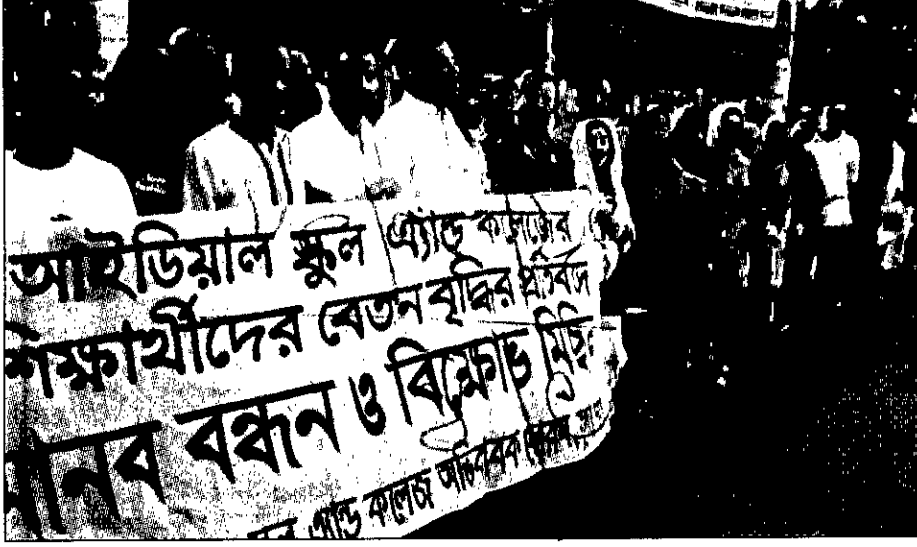 আইডিয়াল স্কুল এ্যান্ড কলেজের
শিক্ষার্থীদের বেতন বৃদ্ধির প্রতিবাদে
মানব বন্ধন ও বিক্ষোভ মিছিল
এ্যান্ড কলেজ অভিভাবক ফোরাম